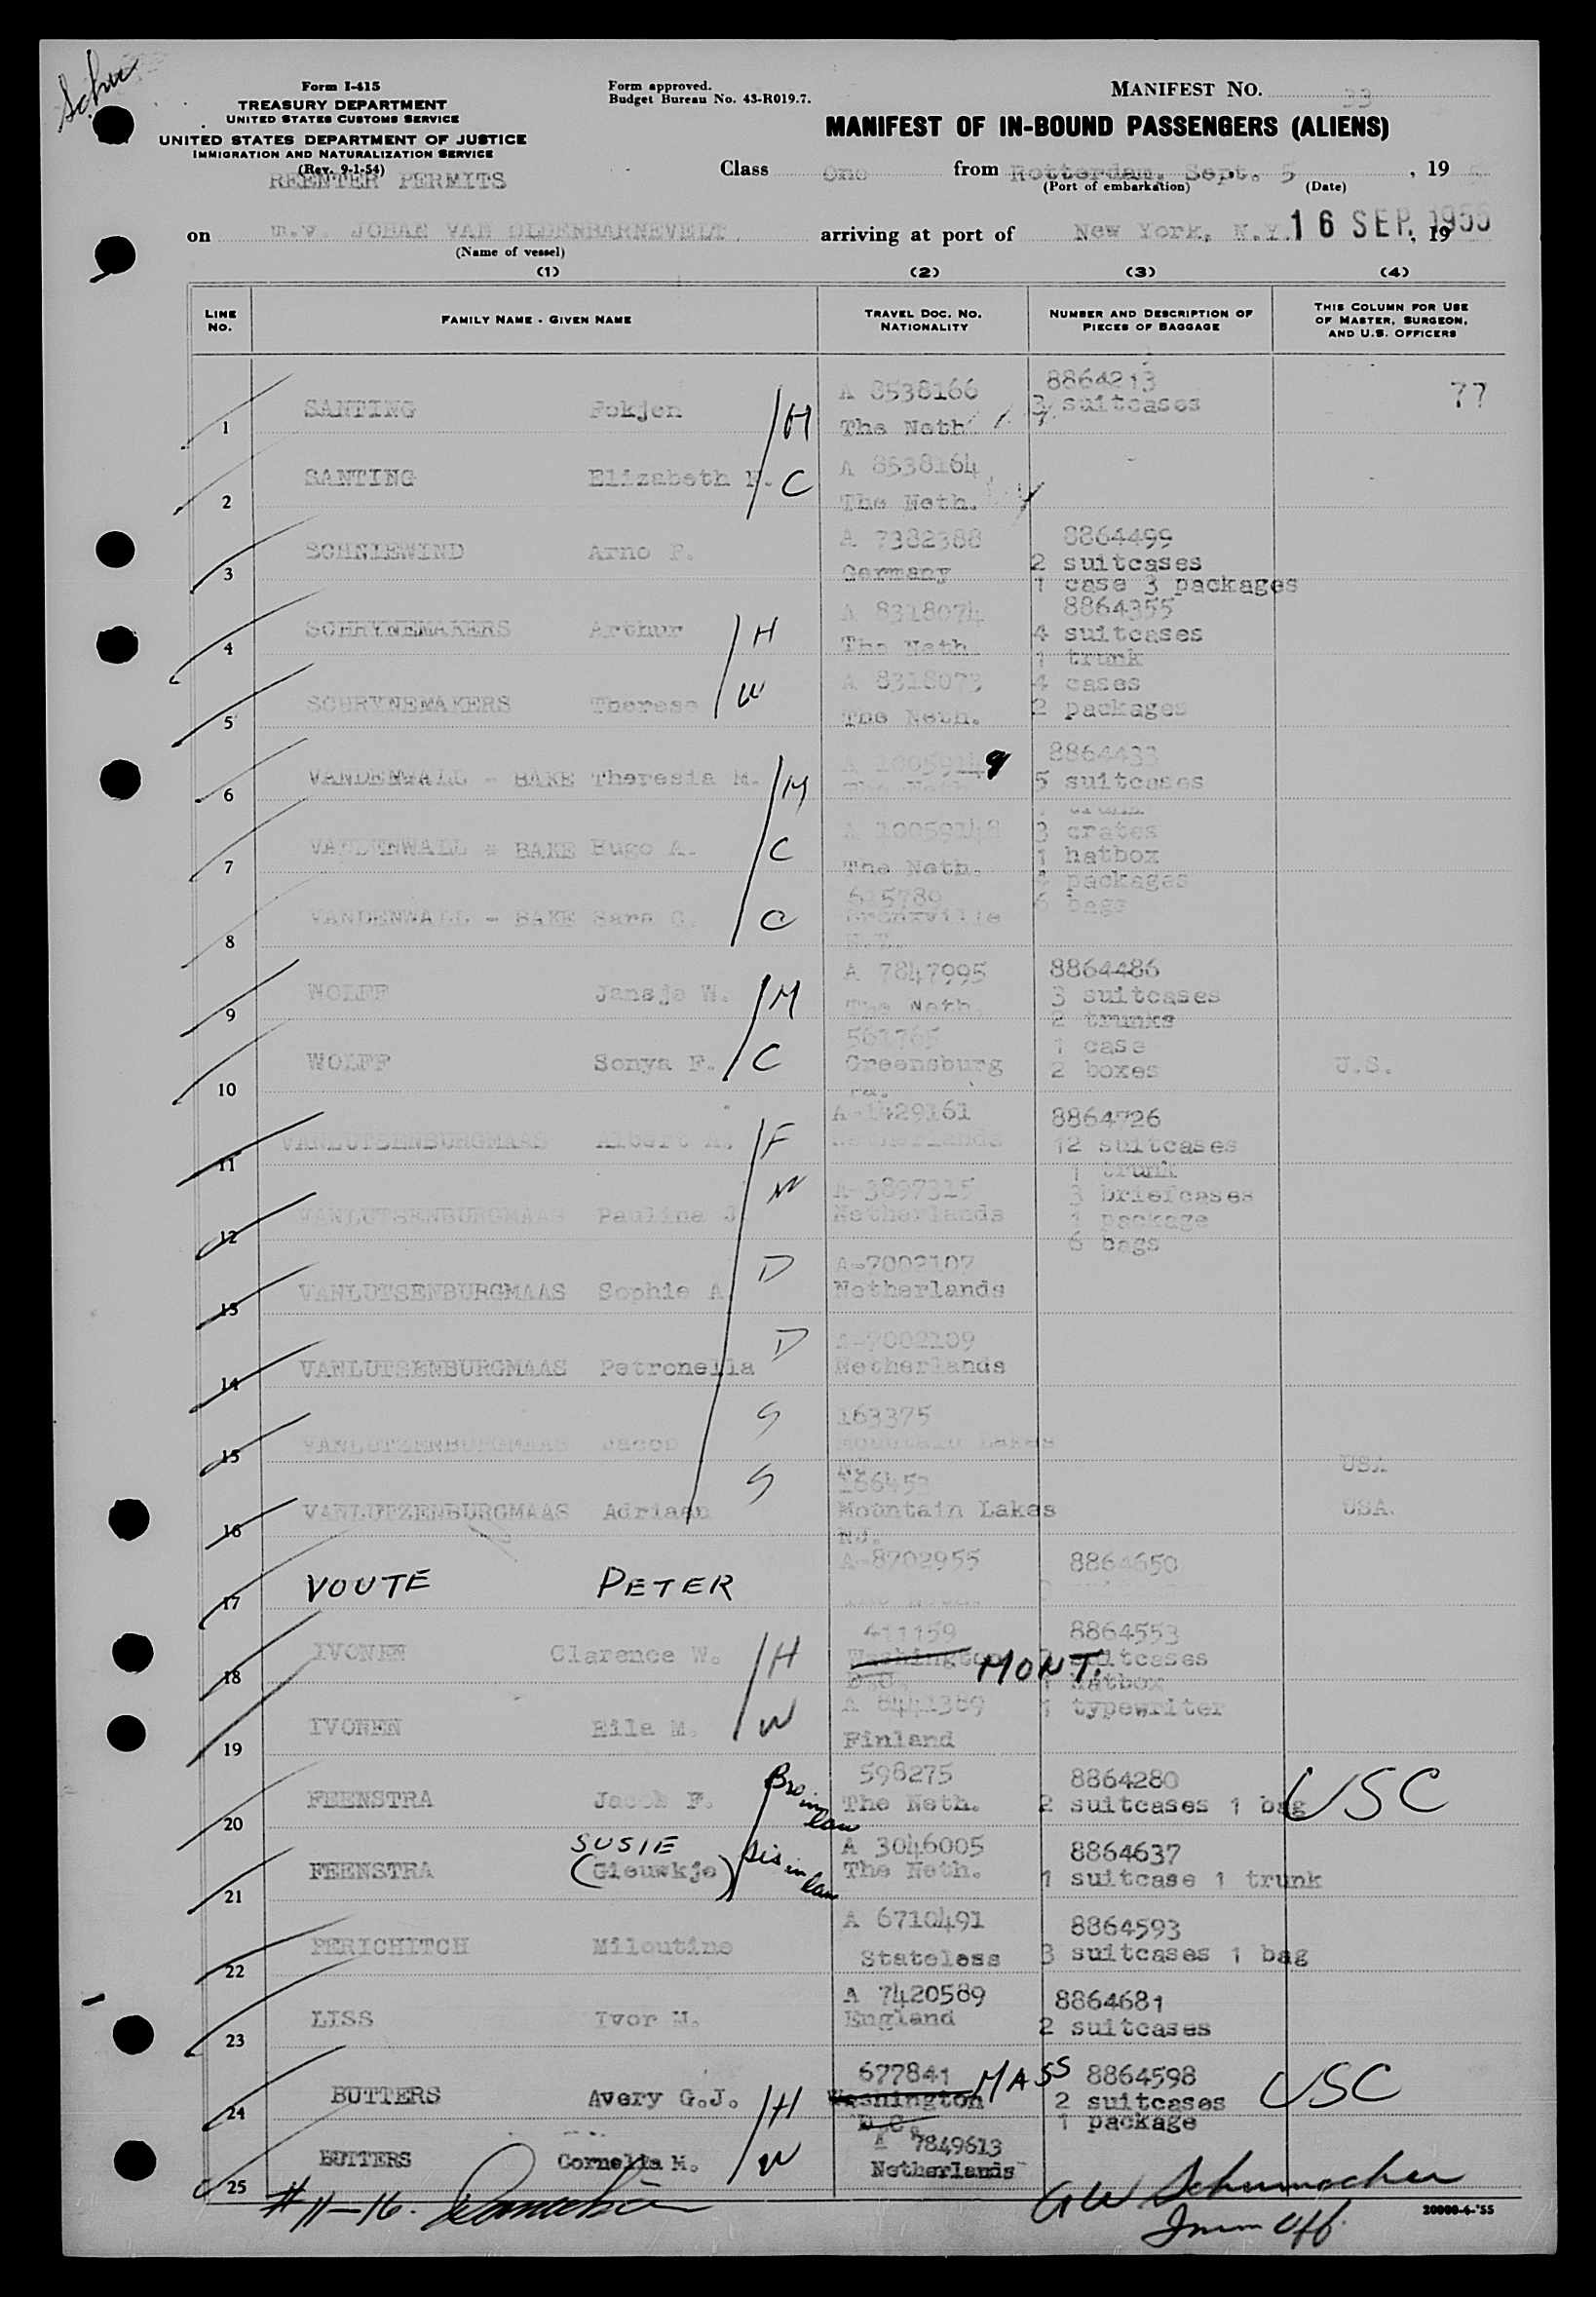 Form I-415
TREASURY DEPARTMENT
UNITED STATES CUSTOMS SERVICE
UNITED STATES DEPARTMENT OF JUSTICE
IMMIGRATION AND NATURALIZATION SERVICE
(Rev. 9-1-54)
REENTER PERMITS
Form approved.
Budget Bureau No. 43-R019.7.
MANIFEST NO. 33
MANIFEST OF IN-BOUND PASSENGERS (ALIENS)
Class One from Rotterdam, Sept. 5, 19
(Port of embarkation) (Date)
on m.v. JOHAN VAN OLDENBARNEVELT, arriving at port of New York, N.Y. 16 SEP. 1955, 19
(Name of vessel)
(1) (2) (3) (4)
LINE NO. FAMILY NAME - GIVEN NAME TRAVEL DOC. NO. NATIONALITY NUMBER AND DESCRIPTION OF PIECES OF BAGGAGE THIS COLUMN FOR USE OF MASTER, SURGEON, AND U.S. OFFICERS
A 8538166 8864213 77
1 SANTING Fokjen H The Neth. suitcases
A 8538164
2 SANTING Elizabeth C The Neth.
A 7382388 8864499
3 SCHNIEWIND Arno F. Germany 2 suitcases
1 case 3 packages
A 8318074 8864355
4 SCHRYNEMAKERS Arthur H The Neth. 4 suitcases
1 trunk
A 8318073 4 cases
5 SCHRYNEMAKERS Therese W The Neth. 2 packages
8864433
6 VANDENWALL - BAKE Theresia M. M 5 suitcases
A 10059148 3 crates
7 VANDENWALL - BAKE Hugo A. C The Neth. 1 hatbox
4 packages
615789 6 bags
8 VANDENWALL - BAKE Sara C. C Bronxville
N.Y.
A 7847995 8864486
9 WOLFF Jansje W. M The Neth. 3 suitcases
2 trunks
561765 1 case
10 WOLFF Sonya F. C Greensburg 2 boxes U.S.
Pa.
A-1429161 8864726
11 VANLUTSENBURGMAAS Albert A. F Netherlands 12 suitcases
1 trunk
A-3897315 3 briefcases
12 VANLUTSENBURGMAAS Paulina J. W Netherlands 1 package
6 bags
A-7002107
13 VANLUTSENBURGMAAS Sophie A. D Netherlands
A-7002109
14 VANLUTSENBURGMAAS Petronella D Netherlands
163375
15 VANLUTZENBURGMAAS Jacob S Mountain Lakes USA
NJ.
166453
16 VANLUTZENBURGMAAS Adriaan S Mountain Lakes USA.
NJ.
A-8702955 8864650
17 VOUTE PETER
411159 8864553
18 IVONEN Clarence W. H Washington D.C. MONT. suitcases
1 hatbox
A 8441389 1 typewriter
19 IVONEN Eila M. W Finland
598275 8864280
20 FEENSTRA Jacob F. Bro in law The Neth. 2 suitcases 1 bag USC
SUSIE A 3046005 8864637
21 FEENSTRA (Gieuwkje) Sis in law The Neth. 1 suitcase 1 trunk
A 6710491 8864593
22 PERICHITCH Miloutine Stateless 3 suitcases 1 bag
A 7420589 8864681
23 LISS Ivor M. England 2 suitcases
677841 8864598
24 BUTTERS Avery G.J. H Washington D.C. MASS 2 suitcases USC
1 package
A 7849613
25 BUTTERS Cornelia M. W Netherlands
# 11-16. GW Schumacher
Imm Off.
20000-6-'55